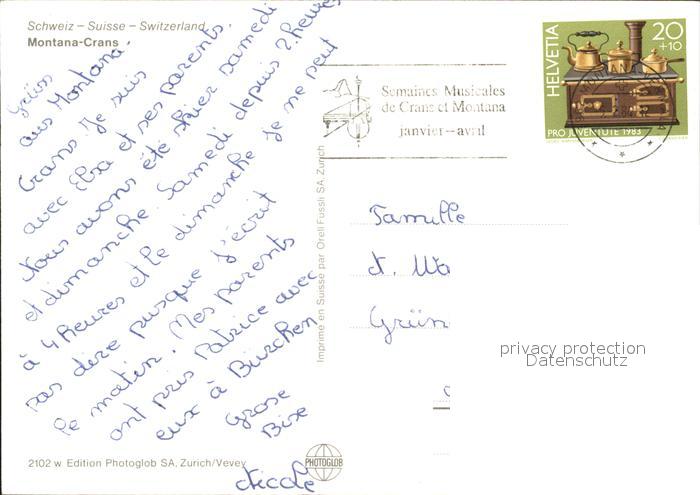 Schweiz – Suisse – Switzerland
Montana-Crans
Grüss
aus Montana
Crans. Je suis
avec Elsa et ses parents
Nous avons été skier samedi
et dimanche. Samedi depuis 2 heures
à 4 heures et le dimanche je ne peut
pas dire pusque j'écrit
le matin. Mes parents
ont pris Patrice avec
eux à Bürchen
Grose
Bise
Nicole
2102 w Edition Photoglob SA, Zurich/Vevey
PHOTOGLOB
Imprimé en Suisse par Orell Füssli SA, Zurich
Semaines Musicales
de Crans et Montana
janvier – avril
HELVETIA
20
+10
PRO JUVENTUTE 1983
Famille
Grün
privacy protection
Datenschutz